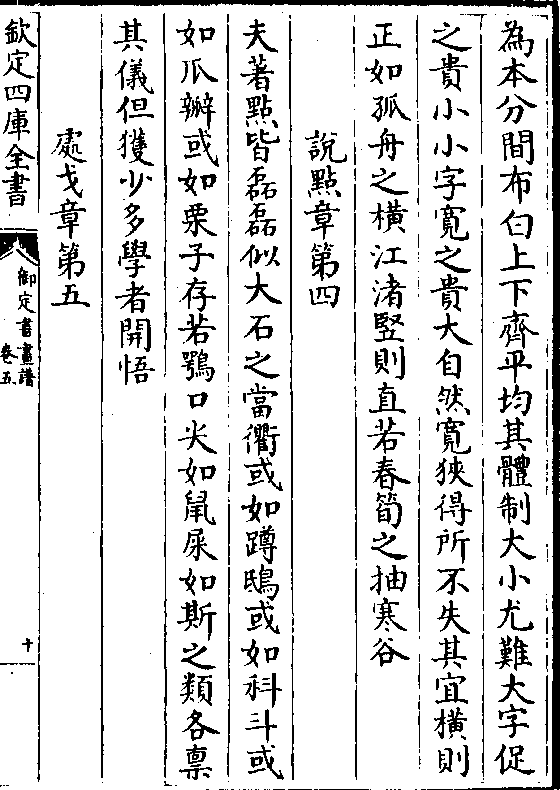 為本分間布白上下齊平均其體制大小尤難大字促
之貴小小字寛之貴大自然寛狹得所不失其宜橫則
正如孤舟之橫江渚豎則直若春筍之抽寒谷
說點章第四
夫著點皆磊磊似大石之當衢或如蹲鴟或如科斗或
如瓜瓣或如栗子存若鶚口尖如鼠屎如斯之類各禀
其儀但獲少多學者開悟
處戈章第五
欽定四庫全書
御定書畫譜
卷五
十